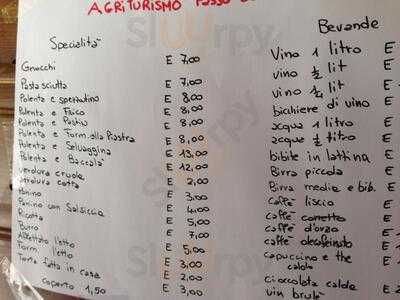 AGRITURISMO Passo
Specialità
Gnocchi E 7,00
Pasta sciutta E 7,00
Polenta e spezzatino E 8,00
Polenta e Fuico E 8,00
Polenta e Pastin E 8,00
Polenta e Form. alla Piastra E 8,00
Polenta e Selvaggina E 13,00
Polenta e Baccalà E 12,00
verdura cruda E 2,00
verdura cotta
Panino E 3,00
Panino con Salsiccia E 4,00
Ricotta E 5,00
Burro E 7,00
Affettato l'etto E 5,00
Form. l'etto E 3,00
Torta fatta in casa E 2,00
coperto 1,50 E 3,00
Bevande
Vino 1 litro E
vino 1/2 lit E
vino 1/4 lit E
bicchiere di vino E
acqua 1 litro E
acqua 1/2 litro E
bibite in lattina E
Birra piccola E
Birra media e bib. E
caffè liscio E
caffè corretto E
caffè d'orzo E
caffè decafeinato E
capuccino e the E
caldo
cioccolata calda E
vin brulè E